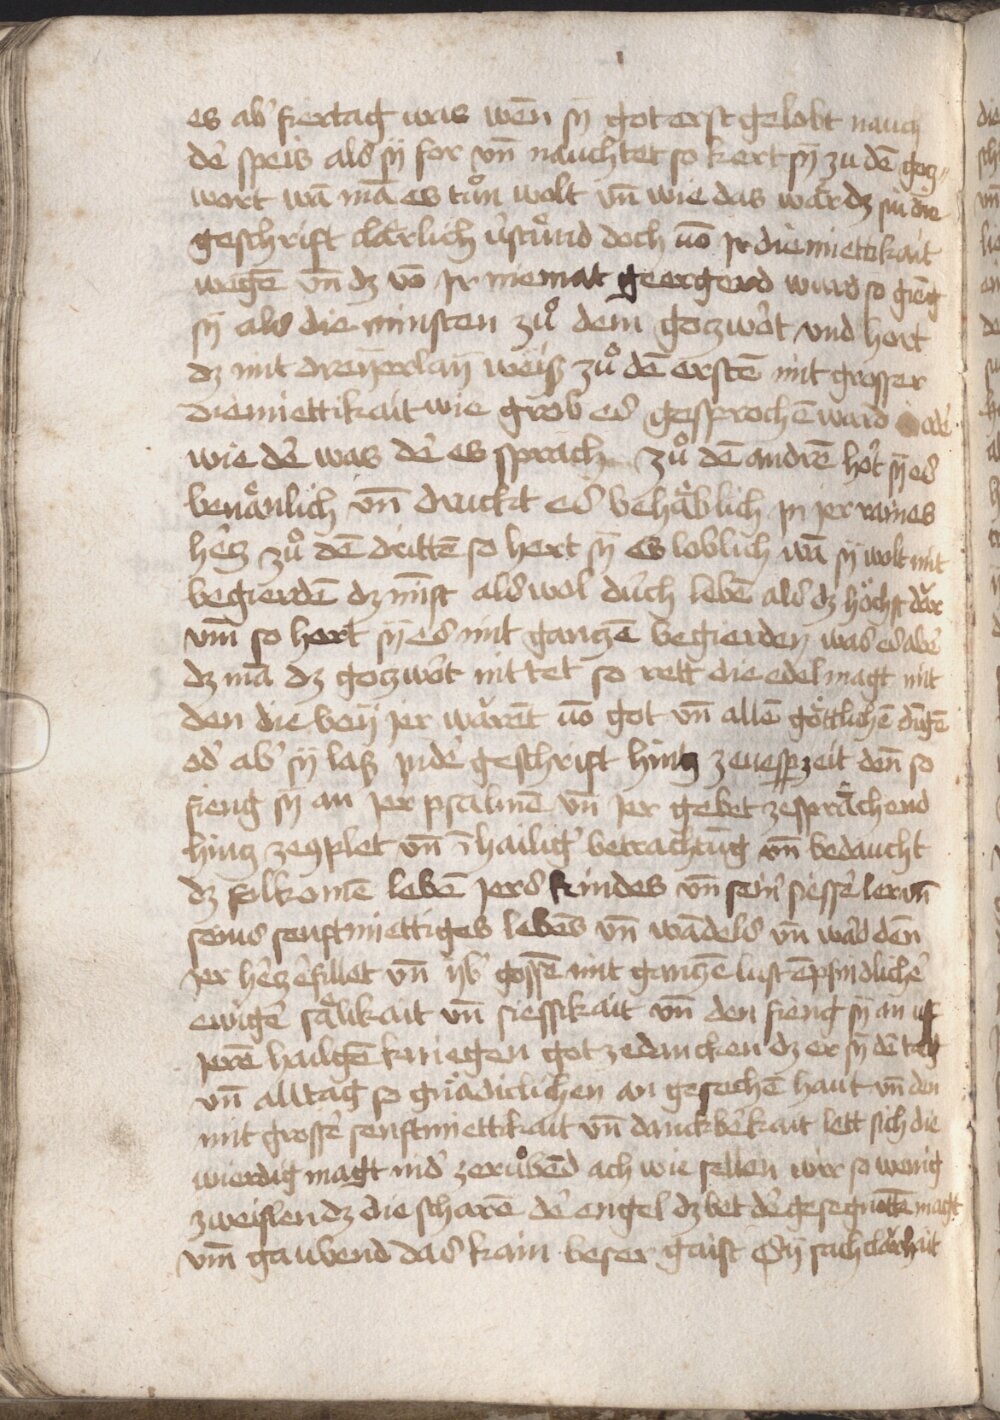 es ab' fiertag was wen̄ sÿ got erst gelobt nauch
de' speis als sÿ for vn̄ nauch tet so kert sÿ zu dē gotz
wort wā mā es tůn wolt vn̄ wie das war dz sü die
geschrift clarlich v'stůnd doch vō Jr diemiettikait
wegē vn̄ dz vō Jr niemat geergerd wurd so gieng
sÿ als die minsten zů dem gotzwo't vnd hort
dz mit dreÿerlaÿ weiß zů dē erstē mit grosser
diemiettikait wie grob es gesprochē ward ode'
wie de' was de' es sprach zů dē andrē ho't sÿ es
benänlich vn̄ druckt es behäblich jn jer raines
he'tz zů dē drittē so hert sÿ es loblich wā sÿ wolt mit
begierdē dz minst als wol durch lebē als dz höchst dar
vm̄ so hort sÿ es mit gantzē begierden was es abe'
dz mā dz gotzwo't nit tet so rett die edel magt mit
den die beÿ jer wärēt vō got vn̄ allē göttlichē dingē
od' ab' sÿ laß jnde' geschrift hintz ze uesperzeit den̄ so
fieng sÿ an jer psalmē vn̄ jer gebet zesprächend
hintz ze gplet vn̄ ī hailig' betrachtūg vn̄ bedaucht
dz folkomē lebē jers kindes vn̄ sein' siesse' ler vn̄
seins senftmiettiges lebēs vn̄ wādels vn̄ wa'd dēn
jer he'tz e'fillet vn̄ ÿb' gossē mit gantzē lust ēpfindliche'
ewige' sälikait vn̄ siessikait vn̄ den fieng sÿ an uf
jerē hailgē kniegen got ze dancken dz er sÿ dē tag
vn̄ alltag so gnädiclichen an gesechē haut vn̄ den
mit grosse' senftmiettikait vn̄ danckbe'kait lett sich die
wierdig magt nid' zerůbēd ach wie sellen wir so wenig
zweiflen dz die scharē de' engel dz bet de' gesegnottē magt
vm̄ gaubend das kain beser gaist Sÿ sach clarhait